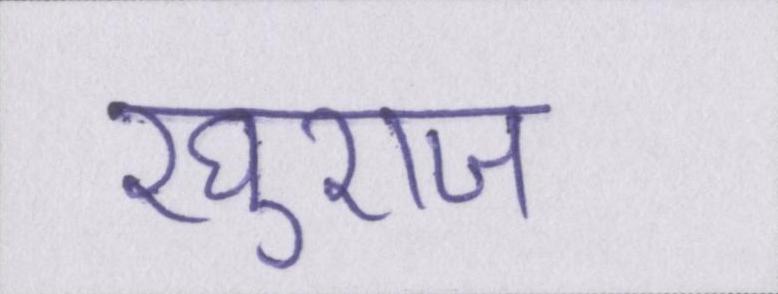 रघुराज